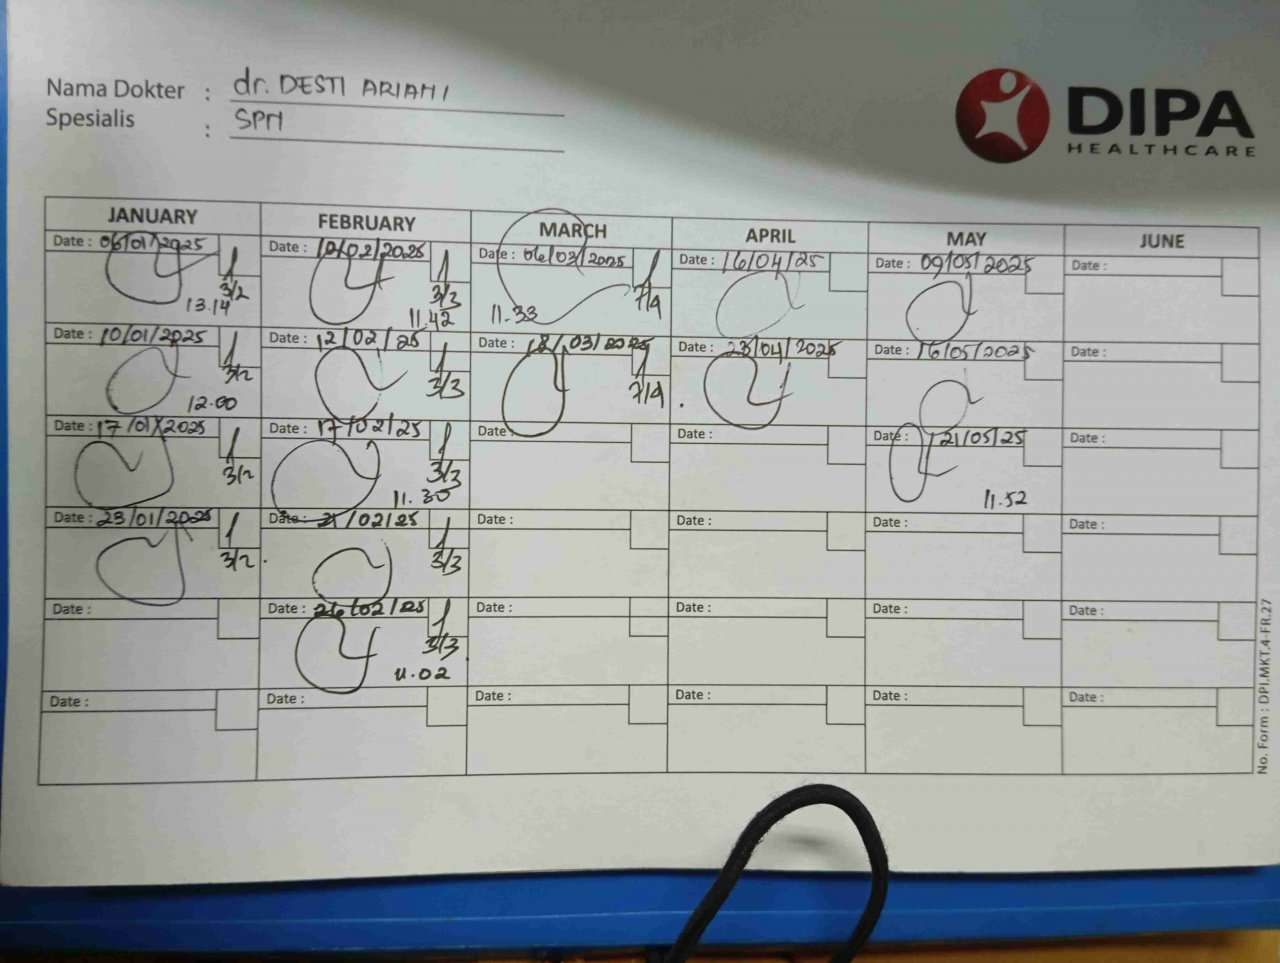 Nama Dokter : dr. DESTI ARIANI
Spesialis : SPM
DIPA
HEALTHCARE
JANUARY FEBRUARY MARCH APRIL MAY JUNE
Date : 06/01/2025 Date : 10/02/2025 Date : 06/03/2025 Date : 16/04/25 Date : 09/05/2025 Date :
3/2 3/3 7/4
13.14 11.42 11.33
Date : 10/01/2025 Date : 12/02/25 Date : 18/03/2025 Date : 23/04/2025 Date : 16/05/2025 Date :
3/2 3/3 7/4
12.00
Date : 17/01/2025 Date : 17/02/25 Date : Date : Date : 21/05/25 Date :
3/2 3/3
11.30 11.52
Date : 23/01/2025 Date : 21/02/25 Date : Date : Date : Date :
3/2 3/3
Date : Date : 26/02/25 Date : Date : Date : Date :
3/3
11.02
Date : Date : Date : Date : Date : Date :
No. Form : DPI.MKT.4-FR.27